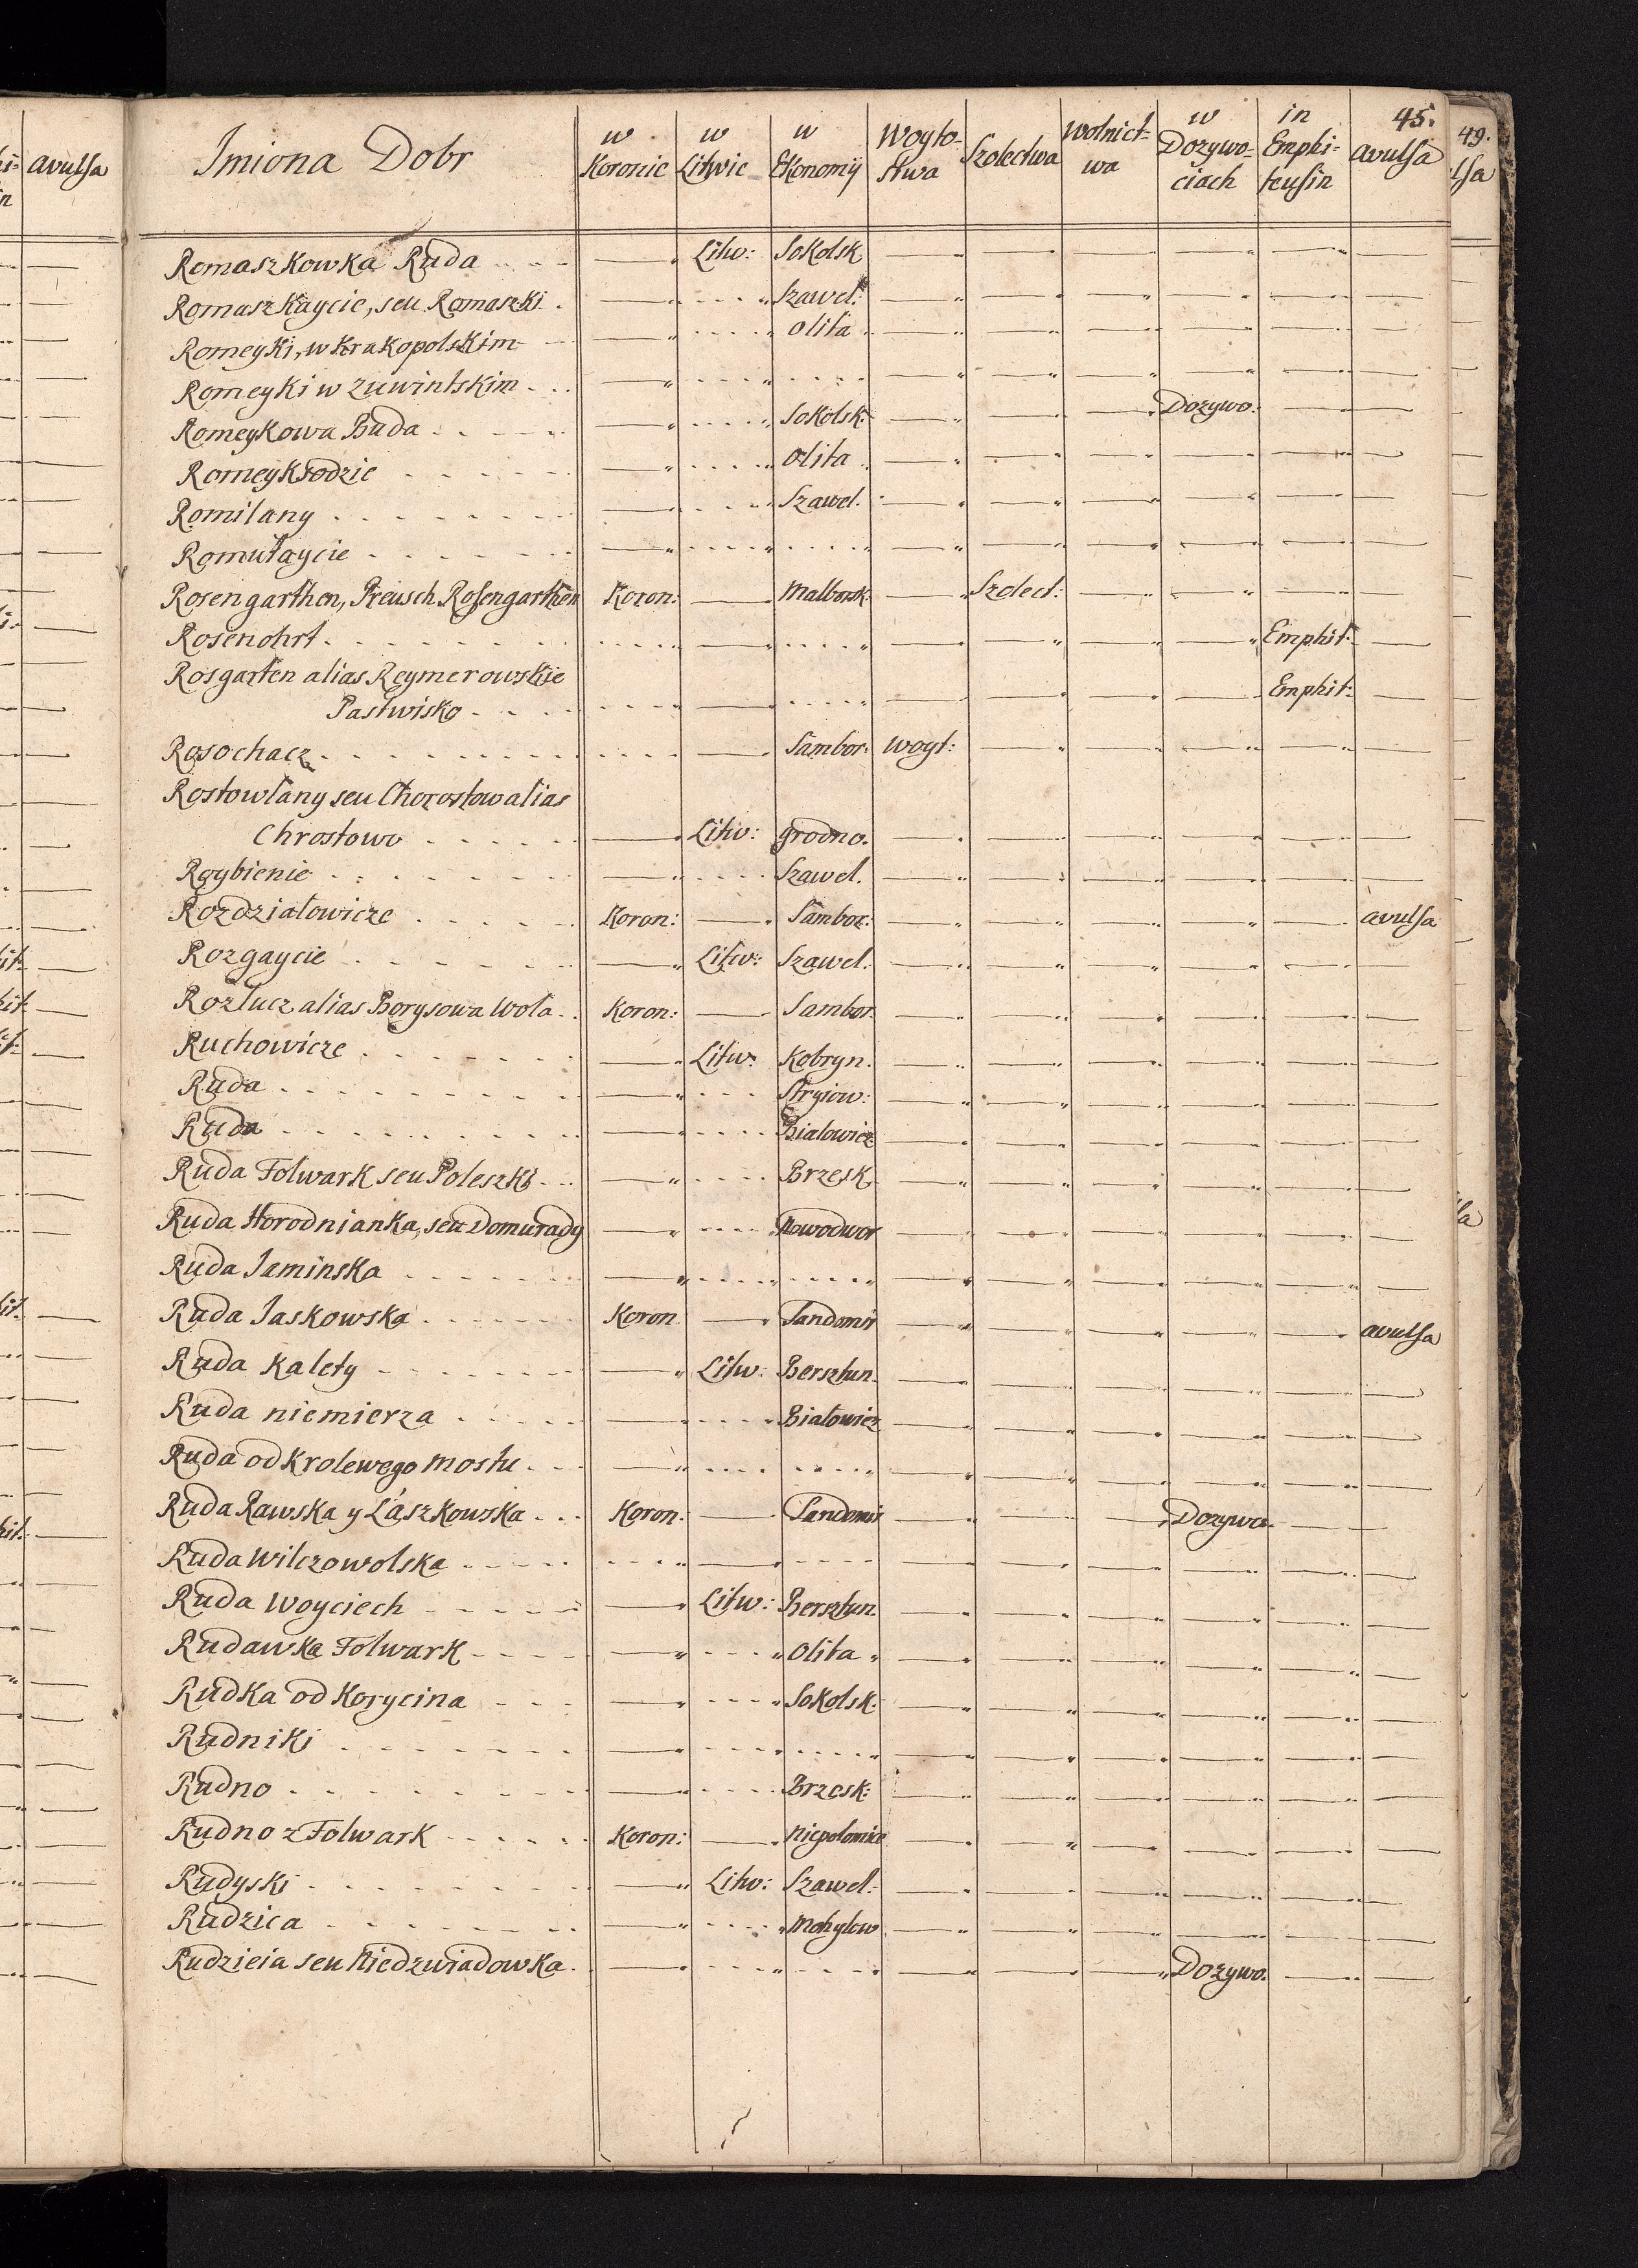 45.
Imiona Dobr | w Koronie | w Litwie | w Ekonomij | Woyto-stwa | Szolectwa | Wolnict-wa | w Dozywo-ciach | in Emphi-teusin | avulsa
Romaszkowka Ruda Litw: Sokolsk
Romaszkaycie, seu Romaszki Szawel:
Romeyki, w Krakopolskim Olita
Romeyki w Zuwintskim
Romeykowa Buda Sokolsk: Dozywo:
Romeykłodzie Olita
Romilany Szawel.
Romułaycie
Rosengarthen, Preusch Rosengarthen Koron: Malborsk: Szolect:
Rosenohrt Emphit:
Rosgarten alias Reymerowskie
Pastwisko Emphit:
Rosochacz Sambor: Woyt:
Rostowlany seu Chorostow alias
Chrostowo Litw: grodno.
Roybienie Szawel.
Rozdziałowicze Koron: Sambor: avulsa
Rozgaycie Litw: Szawel:
Rozlucz alias Borysowa Wola Koron: Sambor.
Ruchowicze Litw: Kobryn.
Ruda Stryiow:
Ruda Bialowiez
Ruda Folwark seu Poleszki Brzesk
Ruda Horodnianka, seu Domurady Nowodwor
Ruda Jaminska
Ruda Jaskowska Koron Sandomir avulsa
Ruda Kalety Litw: Bersztun.
Ruda niemierza Białowiez
Ruda od Krolewego mostu
Ruda Rawska y Laszkowska Koron: Sandomir Dozywo.
Ruda Wilczowolska
Ruda Woyciech Litw: Bersztun.
Rudawka Folwark Olita
Rudka od Korycina Sokolsk.
Rudniki
Rudno Brzesk:
Rudno z Folwark Koron: Niepolomice
Rudyski Litw: Szawel:
Rudzica Mohylow
Rudzieia seu Niedzwiadowka Dozywo.
avulsa
49.